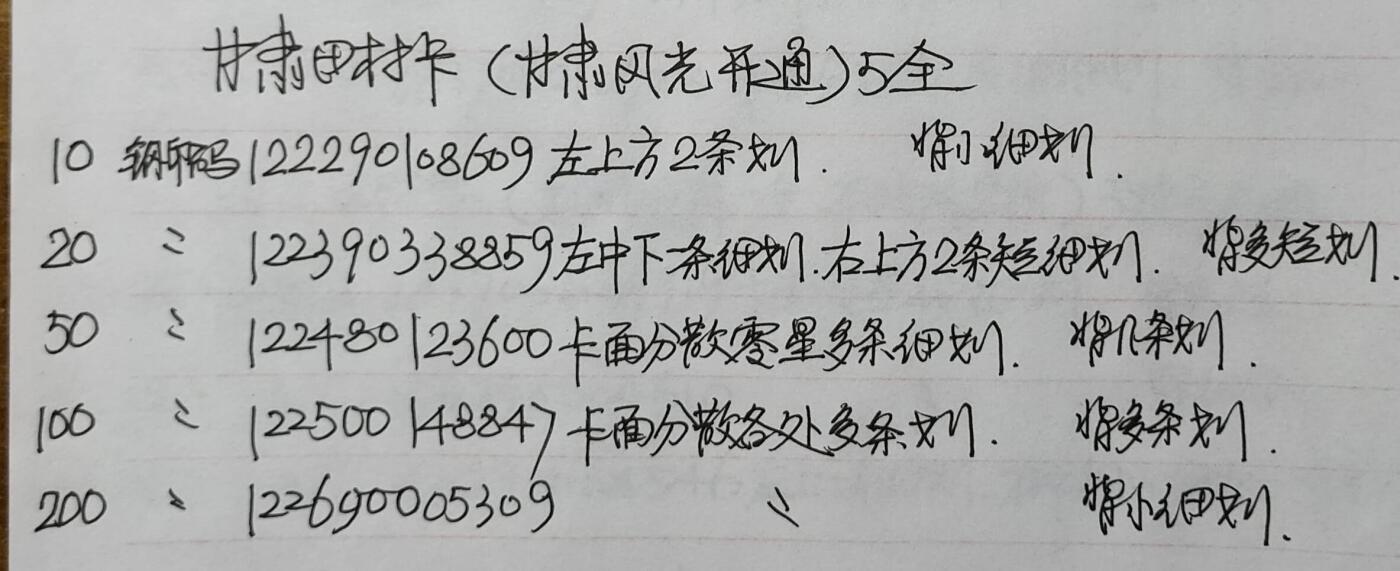 甘肃田村卡（甘肃风光开通）5全
10 钢印码122290108609左上方2条划. 背小细划.
20 〃 122390338859左中下一条细划.右上方2条短细划. 背多短划.
50 〃 122480123600卡面分散零星多条细划. 背几条划.
100 〃 122500148847卡面分散各处多条划. 背多条划.
200 〃 122690005309 〃 背小细划.